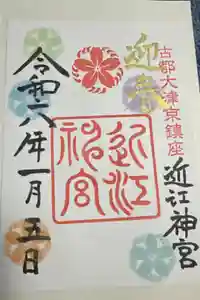 古都大津京鎮座
近江神宮
近江
神宮
令和六年一月五日